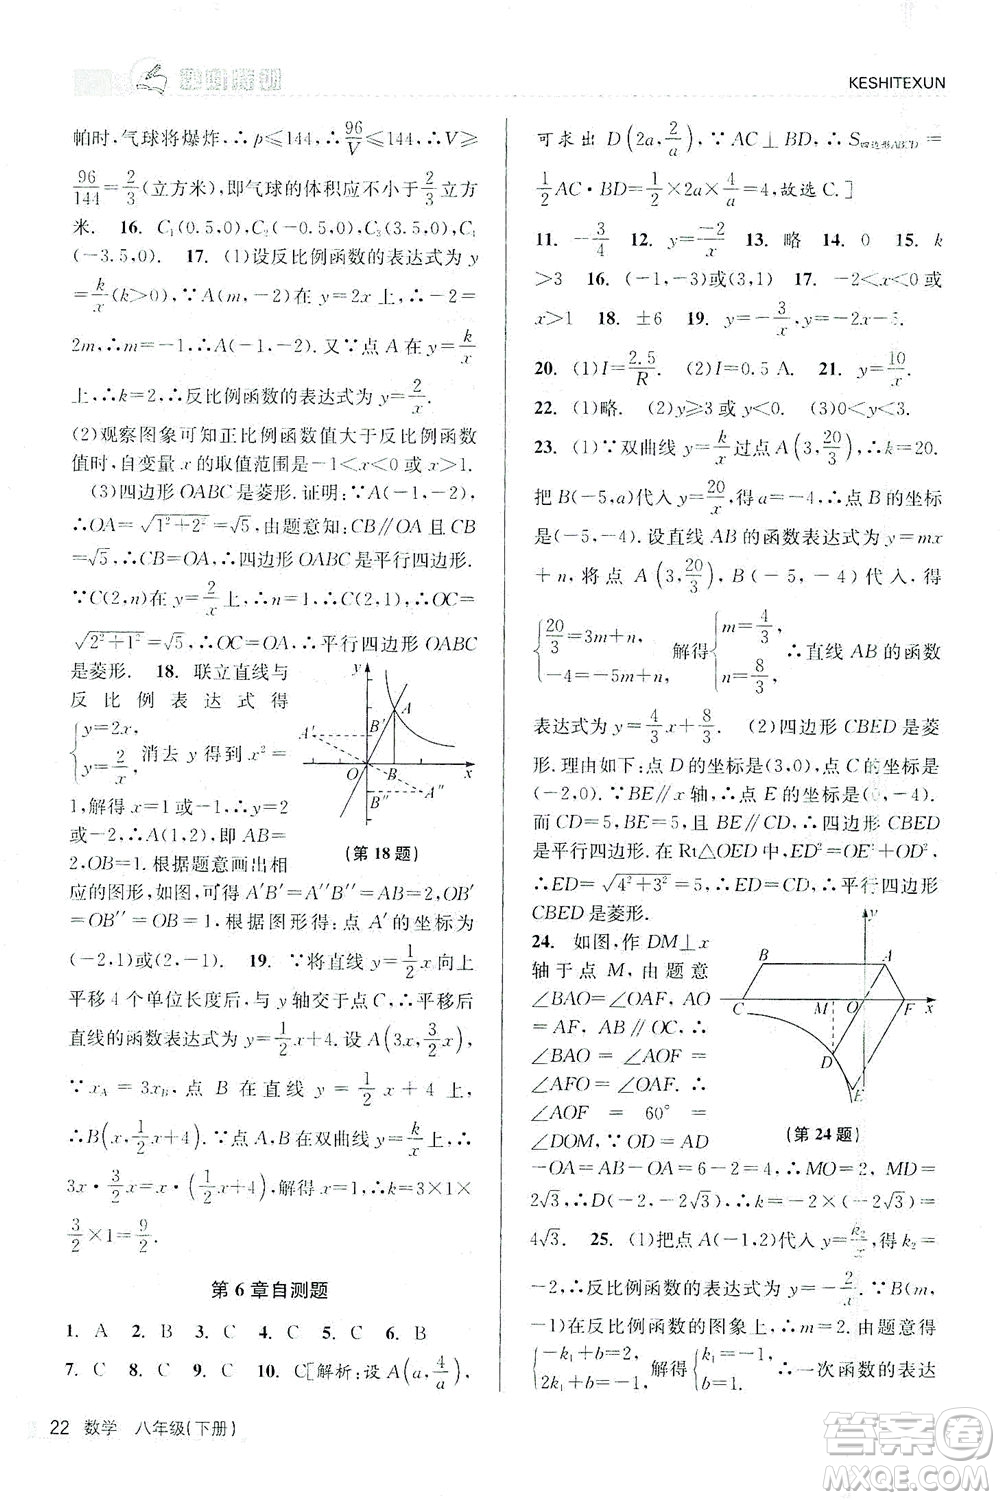 课时特训
KESHITEXUN
帕时,气球将爆炸,∴p≤144,∴96/V≤144,∴V≥
96/144=2/3(立方米),即气球的体积应不小于2/3立方
米. 16. C₁(0.5,0),C₂(-0.5,0),C₃(3.5,0),C₄
(-3.5,0). 17. (1)设反比例函数的表达式为y
=k/x(k>0),∵A(m,-2)在y=2x上,∴-2=
2m,∴m=-1,∴A(-1,-2).又∵点A在y=k/x
上,∴k=2,∴反比例函数的表达式为y=2/x.
(2)观察图象可知正比例函数值大于反比例函数
值时,自变量x的取值范围是-1<x<0或x>1.
(3)四边形OABC是菱形.证明:∵A(-1,-2),
∴OA=√(1²+2²)=√5,由题意知:CB∥OA且CB
=√5,∴CB=OA,∴四边形OABC是平行四边形.
∵C(2,n)在y=2/x上,∴n=1,∴C(2,1),OC=
√(2²+1²)=√5,∴OC=OA,∴平行四边形OABC
是菱形. 18. 联立直线与
反比例表达式得
{y=2x, y=2/x, 消去y得到x²=
1,解得x=1或-1,∴y=2
或-2,∴A(1,2),即AB=
2,OB=1.根据题意画出相
应的图形,如图,可得A′B′=A″B″=AB=2,OB′
=OB″=OB=1,根据图形得:点A′的坐标为
(-2,1)或(2,-1). 19. ∵将直线y=1/2x向上
平移4个单位长度后,与y轴交于点C,∴平移后
直线的函数表达式为y=1/2x+4.设A(3x,3/2x),
∵x_A=3x_B,点B在直线y=1/2x+4上,
∴B(x,1/2x+4).∵点A,B在双曲线y=k/x上,∴
3x·3/2x=x·(1/2x+4),解得x=1,∴k=3×1×
3/2×1=9/2.
y
A′
B′
A
O
B
x
B″
A″
(第18题)
第6章自测题
1. A 2. B 3. C 4. C 5. C 6. B
7. C 8. C 9. C 10. C[解析:设A(a,4/a),
可求出D(2a,2/a),∵AC⊥BD,∴S四边形ABCD=
1/2AC·BD=1/2×2a×4/a=4,故选C.]
11. -3/4 12. y=-2/x 13. 略 14. 0 15. k
>3 16. (-1,-3)或(3,1) 17. -2<x<0或
x>1 18. ±6 19. y=-3/x,y=-2x-5.
20. (1)I=2.5/R (2)I=0.5 A. 21. y=10/x
22. (1)略. (2)y≥3或y<0. (3)0<x<2.
23. (1)∵双曲线y=k/x过点A(3,20/3),∴k=20.
把B(-5,a)代入y=20/x,得a=-4,∴点B的坐标
是(-5,-4).设直线AB的函数表达式为y=mx
+n,将点A(3,20/3),B(-5,-4)代入,得
{20/3=3m+n, -4=-5m+n, 解得{m=4/3, n=8/3, ∴直线AB的函数
表达式为y=4/3x+8/3. (2)四边形CBED是菱
形.理由如下:点D的坐标是(3,0),点C的坐标是
(-2,0).∵BE∥x轴,∴点E的坐标是(0,-4).
而CD=5,BE=5,且BE∥CD,∴四边形CBED
是平行四边形.在Rt△OED中,ED²=OE²+OD²,
∴ED=√(4²+3²)=5,∴ED=CD,∴平行四边形
CBED是菱形.
24. 如图,作DM⊥x
轴于点M,由题意
∠BAO=∠OAF,AO
=AF,AB∥OC,∴
∠BAO=∠AOF=
∠AFO=∠OAF.∴
∠AOF=60°=
∠DOM,∵OD=AD
-OA=AB-OA=6-4=2,∴MO=2,MD=
2√3,∴D(-2,-2√3),∴k=-2×(-2√3)=
4√3. 25. (1)把点A(-1,2)代入y=k₂/x,得k₂=
-2,∴反比例函数的表达式为y=-2/x.∵B(m,
-1)在反比例函数的图象上,∴m=2.由题意得
{-k₁+b=2, 2k₁+b=-1, 解得{k₁=-1, b=1, ∴一次函数的表达
y
B
A
C
M
O
F
x
D
E
(第24题)
22 数学 八年级(下册)
答案圈
MXQE.COM